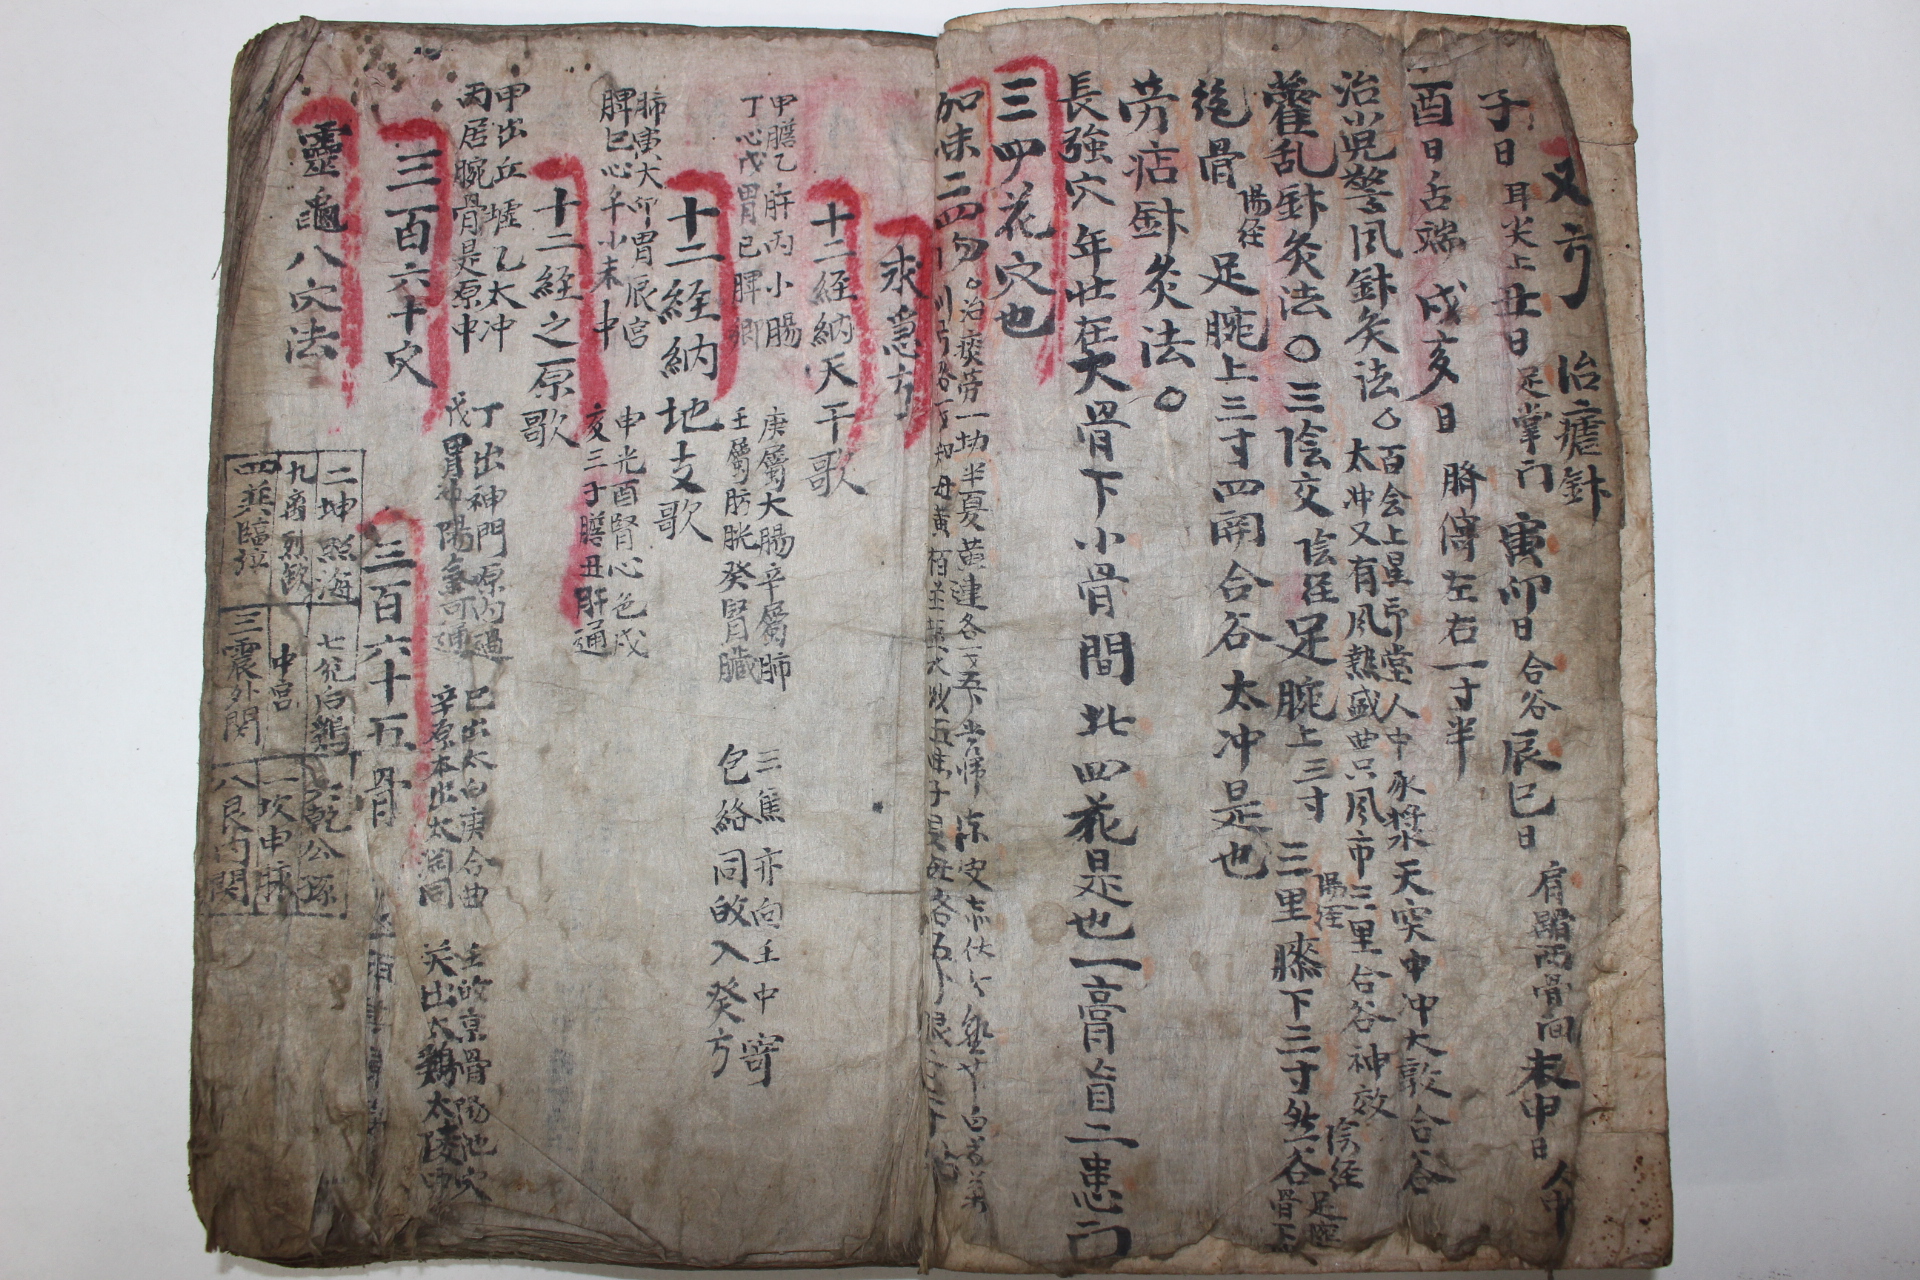 又方 治瘧鈢
子日耳尖上丑日足掌门寅卯日合谷辰巳日肩顒両骨间未申日人中
酉日舌端戌亥日臍傍左右一寸半
治小児驚风鈢灸法○百会上星印堂人中承漿天突中冲大敦合谷
太冲又有风熱盛曲只风市三里合谷神效
藿乱鈢灸法○三陰交陰経足腕上三寸三里陽経膝下三寸然谷陰経足腕骨下
絶骨陽経足腕上三寸四関合谷太冲是也
劳痁鈢灸法○
長強穴年壮在大骨下小骨間此四花是也一膏盲二患门
三四花穴也
加未二四勿○治痰劳一切半夏黄連各
求急方
十二経納天干歌
甲膽乙肝丙小腸 庚屬大腸辛屬肺 三焦亦向壬中寄
丁心戊胃己脾卿 壬屬膀胱癸腎臓 包絡同故入癸方
十二経納地支歌
肺寅大卯胃辰宮 申光酉腎心包戌
脾巳心午小未中 亥三子膽丑肝通
十二経之原歌
甲出丘墟乙太冲 丁出神門原内過 己出太白庚合曲 壬故京骨陽池穴
丙居腕骨是原中 戊胃冲陽氣可通 辛原本出太渕同 癸出太鷄太陵中
三百六十穴 三百六十五骨
靈龜八穴法
二坤照海 七兌后鷄 六乾公孫
九离列缺 中宮 一坎申脉
四巽臨泣 三震外関 八艮内関